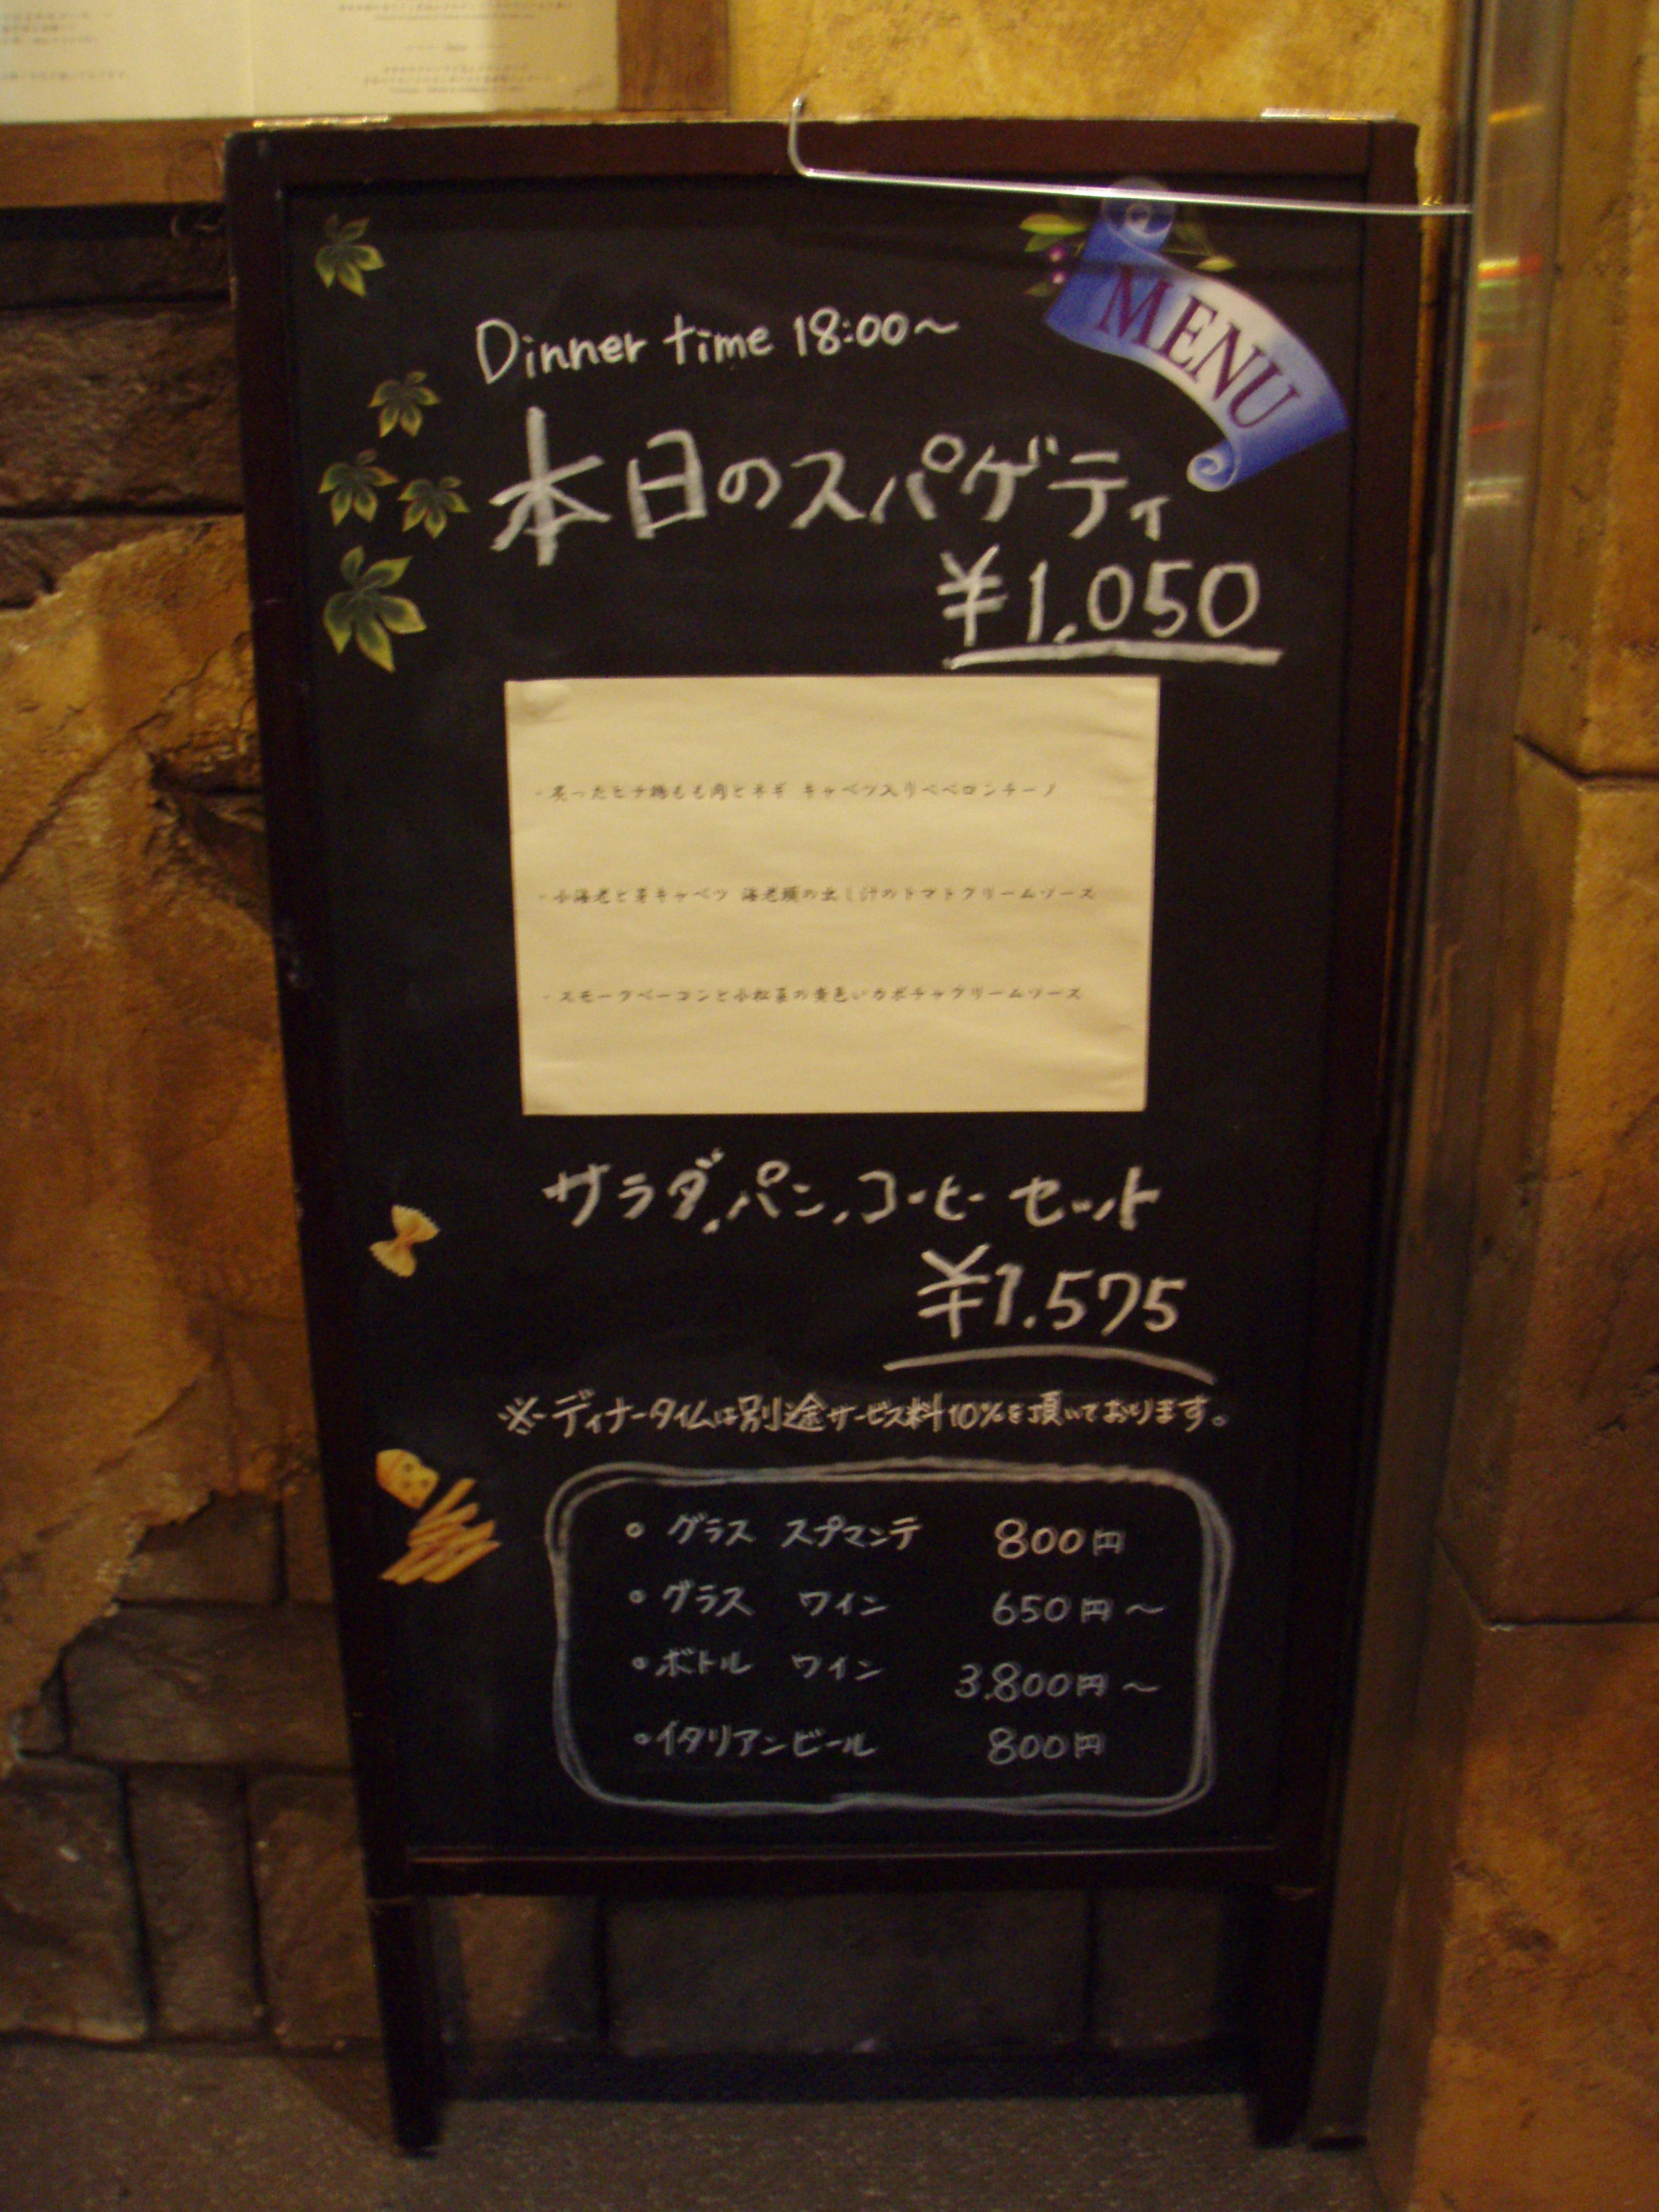 MENU
Dinner time 18:00〜
本日のスパゲティ
¥1,050
・炙ったヒナ鶏もも肉とネギ キャベツ入りペペロンチーノ
・小海老と芽キャベツ 海老頭の出し汁のトマトクリームソース
・スモークベーコンと小松菜の黄色いカボチャクリームソース
サラダ,パン,コーヒーセット
¥1.575
※ディナータイムは別途サービス料10%を頂いております。
○ グラス スプマンテ 800円
○ グラス ワイン 650円〜
○ ボトル ワイン 3.800円〜
○ イタリアンビール 800円